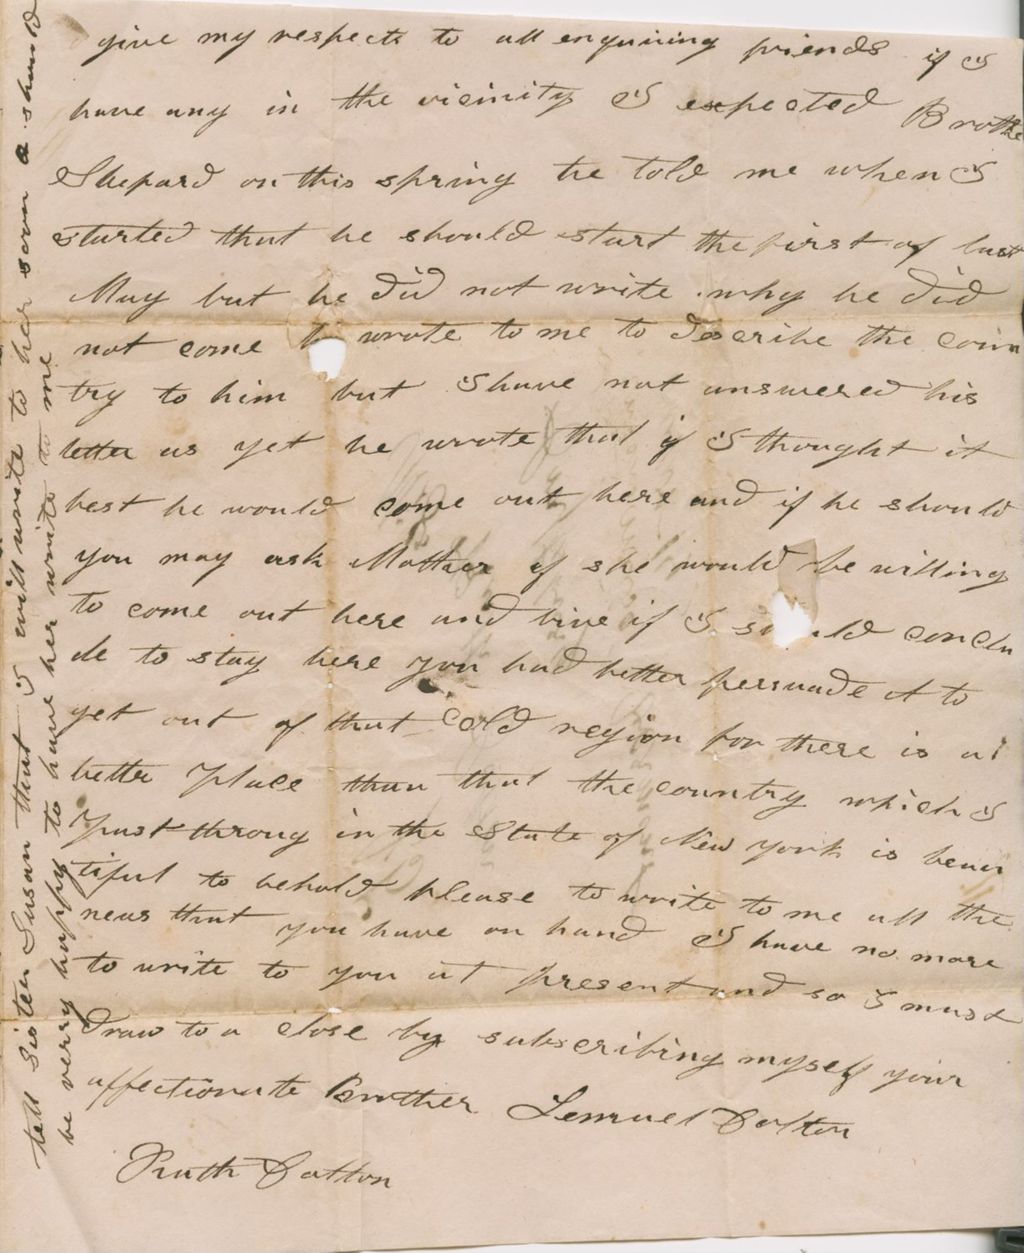 give my respects to all enquiring friends if I
have any in the vicinity I expected Brothe
Shepard on this spring he told me when I
started that he should start the first of last
May but he did not write why he did
not come wrote to me to describe the coun
try to him but I have not answered his
letter as yet he wrote that if I thought it
best he would come out here and if he should
you may ask Mother if she would be willing
to come out here and live if I sh ld conclu
de to stay here you had better persuade it to
get out of that cold region for there is a
better place than that the country which I
past throug in the State of New york is beau
tiful to behold please to write to me all the
news that you have on hand I have no more
to write to you at present and so I must
draw to a close by subscribing myself your
affectionate Brother Lemuel Dalton
Ruth Dalton
tell Sister Susan that I will write to her soon & should
be verry happy to have her write to me